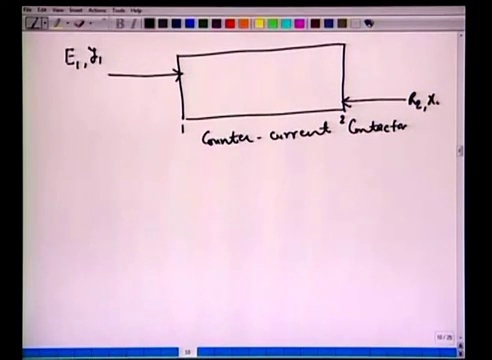 File Edit View Insert Actions Tools Help
E1, y1
R2, x
1
2
Counter-current Contactor
10
10/25